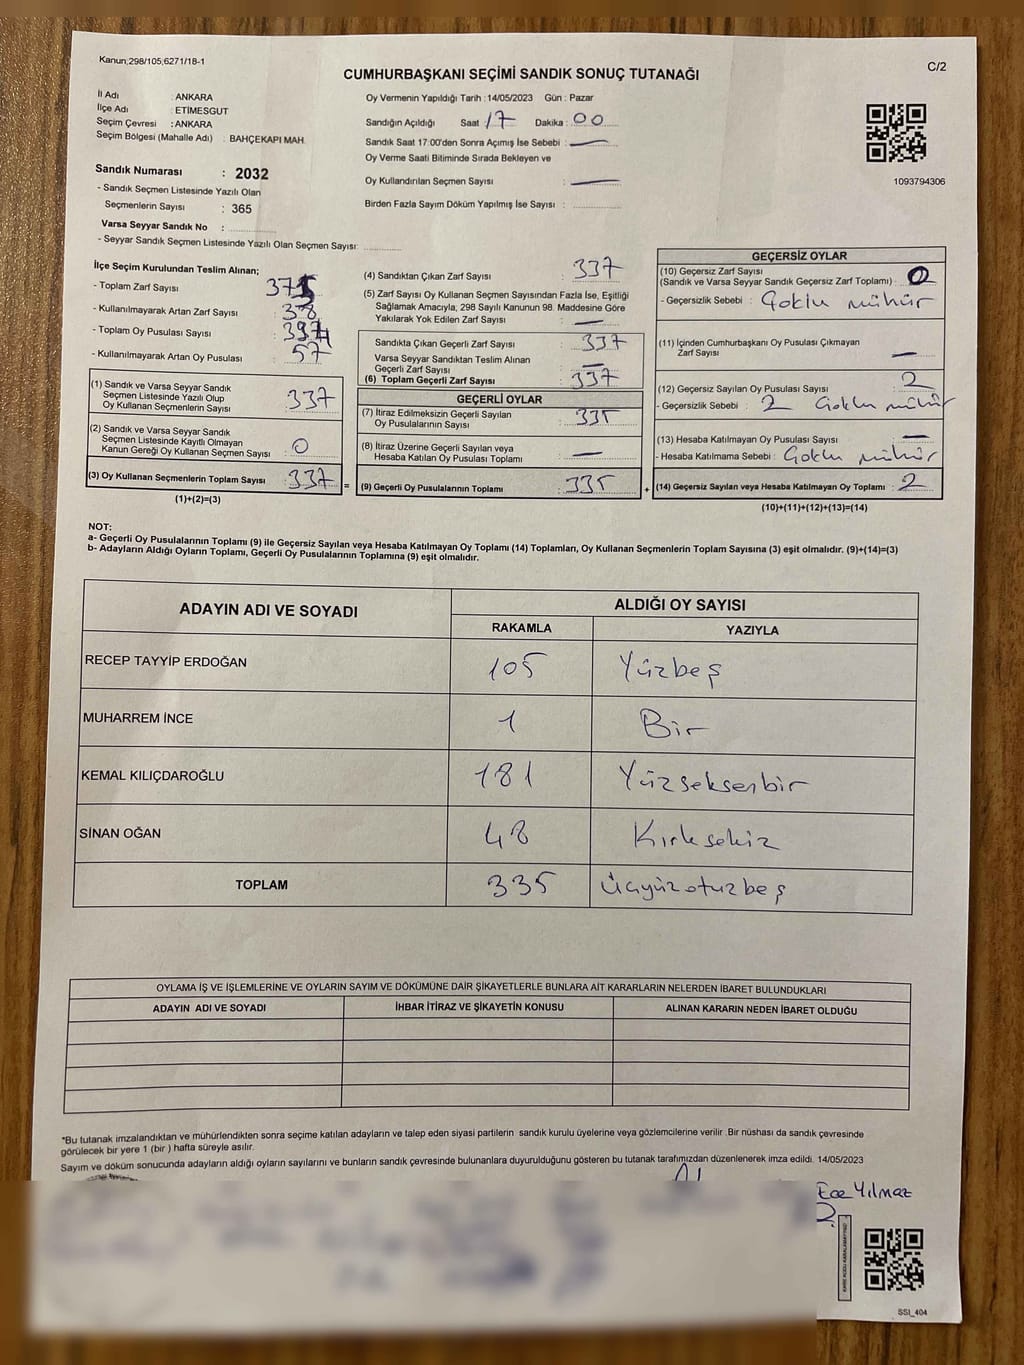 Kanun;298/105;6271/18-1
C/2
CUMHURBAŞKANI SEÇİMİ SANDIK SONUÇ TUTANAĞI
İl Adı : ANKARA
İlçe Adı : ETİMESGUT
Seçim Çevresi : ANKARA
Seçim Bölgesi (Mahalle Adı) : BAHÇEKAPI MAH.
Sandık Numarası : 2032
- Sandık Seçmen Listesinde Yazılı Olan
Seçmenlerin Sayısı : 365
Varsa Seyyar Sandık No :
- Seyyar Sandık Seçmen Listesinde Yazılı Olan Seçmen Sayısı:
Oy Vermenin Yapıldığı Tarih : 14/05/2023 Gün : Pazar
Sandığın Açıldığı Saat 17 Dakika : 00
Sandık Saat 17:00'den Sonra Açımış İse Sebebi :
Oy Verme Saati Bitiminde Sırada Bekleyen ve
Oy Kullandırılan Seçmen Sayısı :
Birden Fazla Sayım Döküm Yapılmış İse Sayısı :
1093794306
İlçe Seçim Kurulundan Teslim Alınan;
- Toplam Zarf Sayısı
- Kullanılmayarak Artan Zarf Sayısı : 38
- Toplam Oy Pusulası Sayısı : 394
- Kullanılmayarak Artan Oy Pusulası : 57
(1) Sandık ve Varsa Seyyar Sandık
Seçmen Listesinde Yazılı Olup
Oy Kullanan Seçmenlerin Sayısı : 337
(2) Sandık ve Varsa Seyyar Sandık
Seçmen Listesinde Kayıtlı Olmayan
Kanun Gereği Oy Kullanan Seçmen Sayısı : 0
(3) Oy Kullanan Seçmenlerin Toplam Sayısı : 337 =
(1)+(2)=(3)
(4) Sandıktan Çıkan Zarf Sayısı : 337
(5) Zarf Sayısı Oy Kullanan Seçmen Sayısından Fazla İse, Eşitliği
Sağlamak Amacıyla; 298 Sayılı Kanunun 98. Maddesine Göre
Yakılarak Yok Edilen Zarf Sayısı :
Sandıkta Çıkan Geçerli Zarf Sayısı : 337
Varsa Seyyar Sandıktan Teslim Alınan
Geçerli Zarf Sayısı :
(6) Toplam Geçerli Zarf Sayısı : 337
GEÇERLİ OYLAR
(7) İtiraz Edilmeksizin Geçerli Sayılan
Oy Pusulalarının Sayısı : 335
(8) İtiraz Üzerine Geçerli Sayılan veya
Hesaba Katılan Oy Pusulası Toplamı :
(9) Geçerli Oy Pusulalarının Toplamı : 335 +
GEÇERSİZ OYLAR
(10) Geçersiz Zarf Sayısı
(Sandık ve Varsa Seyyar Sandık Geçersiz Zarf Toplamı) : 0
- Geçersizlik Sebebi : Çoklu mühür
(11) İçinden Cumhurbaşkanı Oy Pusulası Çıkmayan
Zarf Sayısı :
(12) Geçersiz Sayılan Oy Pusulası Sayısı : 2
- Geçersizlik Sebebi : 2 Çoklu mühür
(13) Hesaba Katılmayan Oy Pusulası Sayısı :
- Hesaba Katılmama Sebebi : Çoklu mühür
(14) Geçersiz Sayılan veya Hesaba Katılmayan Oy Toplamı : 2
(10)+(11)+(12)+(13)=(14)
NOT:
a- Geçerli Oy Pusulalarının Toplamı (9) ile Geçersiz Sayılan veya Hesaba Katılmayan Oy Toplamı (14) Toplamları, Oy Kullanan Seçmenlerin Toplam Sayısına (3) eşit olmalıdır. (9)+(14)=(3)
b- Adayların Aldığı Oyların Toplamı, Geçerli Oy Pusulalarının Toplamına (9) eşit olmalıdır.
ADAYIN ADI VE SOYADI
ALDIĞI OY SAYISI
RAKAMLA YAZIYLA
RECEP TAYYİP ERDOĞAN 105 Yüzbeş
MUHARREM İNCE 1 Bir
KEMAL KILIÇDAROĞLU 181 Yüzseksenbir
SİNAN OĞAN 48 Kırksekiz
TOPLAM 335 Üçyüzotuzbeş
OYLAMA İŞ VE İŞLEMLERİNE VE OYLARIN SAYIM VE DÖKÜMÜNE DAİR ŞİKAYETLERLE BUNLARA AİT KARARLARIN NELERDEN İBARET BULUNDUKLARI
ADAYIN ADI VE SOYADI İHBAR İTİRAZ VE ŞİKAYETİN KONUSU ALINAN KARARIN NEDEN İBARET OLDUĞU
*Bu tutanak imzalandıktan ve mühürlendikten sonra seçime katılan adayların ve talep eden siyasi partilerin sandık kurulu üyelerine veya gözlemcilerine verilir .Bir nüshası da sandık çevresinde
görülecek bir yere 1 (bir ) hafta süreyle asılır.
Sayım ve döküm sonucunda adayların aldığı oyların sayılarını ve bunların sandık çevresinde bulunanlara duyurulduğunu gösteren bu tutanak tarafımızdan düzenlenerek imza edildi. 14/05/2023
Ece Yılmaz
SSI_404